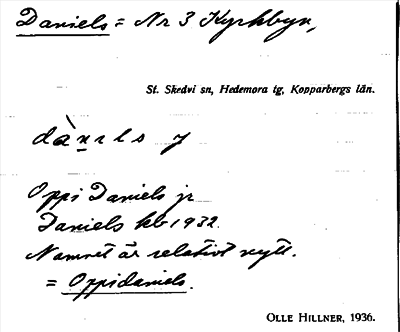 Daniels = Nr 3 Kyrkbyn,
St. Skedvi sn, Hedemora tg, Kopparbergs län.
dàn̲ɪls J
Oppi Daniels jr
Daniels kb 1932.
Namnet är relativt nytt.
= Oppidaniels.
OLLE HILLNER, 1936.